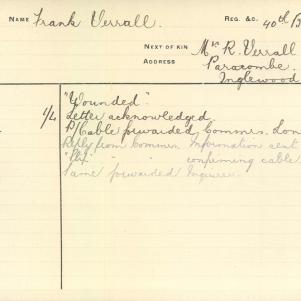 NAME Frank Verrall. REG. &C. 40th B
NEXT OF KIN Mr R. Verrall
ADDRESS Paracombe.
Inglewood
"Wounded".
1/4 Letter acknowledged
P/Cable forwarded Commrs. Lon
Reply from Commrs Information sent
" " confirming cable
Same forwarded